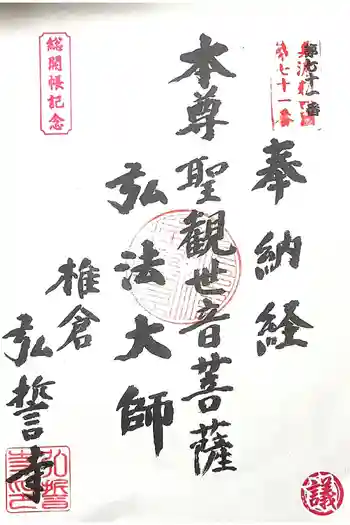 奉納経
第七十一番
第七十一番
本尊聖観世音菩薩
弘法大師
椎倉
弘誓寺
総開帳記念
議